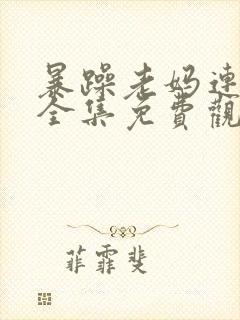 暴躁老妈連
全集免費觀
菲霏斐